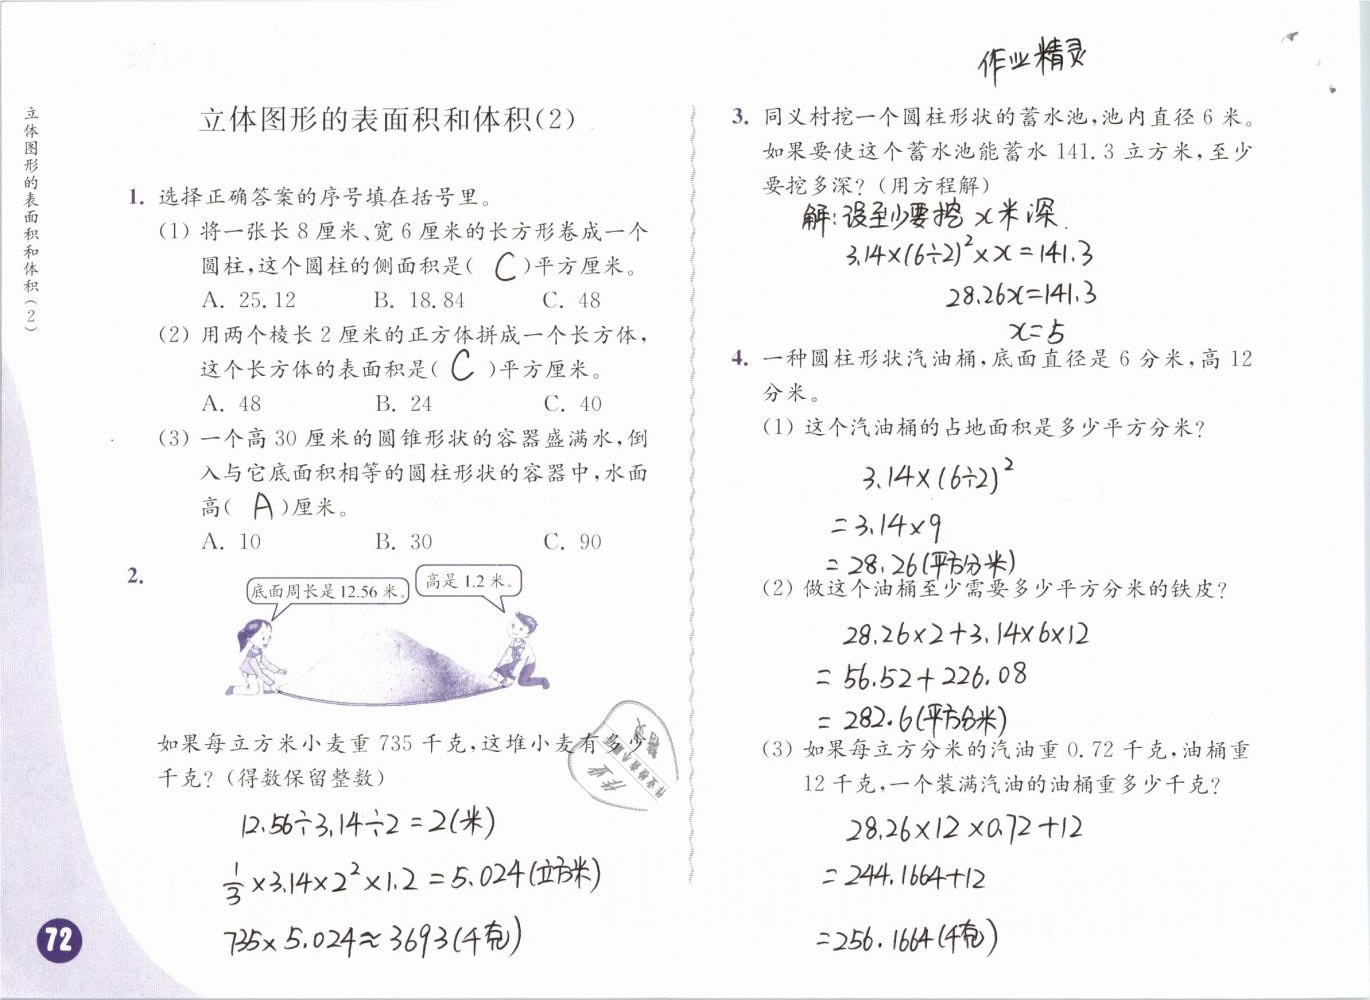 作业精灵
立体图形的表面积和体积(2)
立体图形的表面积和体积(2)
1. 选择正确答案的序号填在括号里。
(1) 将一张长 8 厘米、宽 6 厘米的长方形卷成一个
圆柱,这个圆柱的侧面积是( C )平方厘米。
A. 25.12 B. 18.84 C. 48
(2) 用两个棱长 2 厘米的正方体拼成一个长方体,
这个长方体的表面积是( C )平方厘米。
A. 48 B. 24 C. 40
(3) 一个高 30 厘米的圆锥形状的容器盛满水,倒
入与它底面积相等的圆柱形状的容器中,水面
高( A )厘米。
A. 10 B. 30 C. 90
2.
底面周长是 12.56 米。
高是 1.2 米。
如果每立方米小麦重 735 千克,这堆小麦有多少
千克? (得数保留整数)
12.56÷3.14÷2=2(米)
1/3×3.14×2²×1.2=5.024(立方米)
735×5.024≈3693(千克)
72
3. 同义村挖一个圆柱形状的蓄水池,池内直径 6 米。
如果要使这个蓄水池能蓄水 141.3 立方米,至少
要挖多深? (用方程解)
解:设至少要挖x米深.
3.14×(6÷2)²×x=141.3
28.26x=141.3
x=5
4. 一种圆柱形状汽油桶,底面直径是 6 分米,高 12
分米。
(1) 这个汽油桶的占地面积是多少平方分米?
3.14×(6÷2)²
=3.14×9
=28.26(平方分米)
(2) 做这个油桶至少需要多少平方分米的铁皮?
28.26×2+3.14×6×12
=56.52+226.08
=282.6(平方分米)
(3) 如果每立方分米的汽油重 0.72 千克,油桶重
12 千克,一个装满汽油的油桶重多少千克?
28.26×12×0.72+12
=244.1664+12
=256.1664(千克)